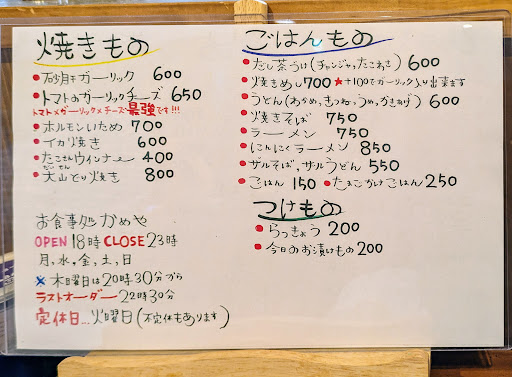 焼きもの
• 砂肝ガーリック 600
• トマトのガーリックチーズ 650
トマト×ガーリック×チーズ最強です!!!
• ホルモンいため 700
• イカ焼き 600
• たこさんウインナー 400
• 大山とり焼き 800
だいせん
お食事処 かめや
OPEN 18時 CLOSE 23時
月,水,金,土,日
× 木曜日は20時30分から
ラストオーダー 22時30分
定休日...火曜日(不定休もあります)
ごはんもの
• だし茶づけ(チャンジャ,たこあき) 600
• 焼きめし 700 ★+100でガーリック入り出来ます
• うどん(わかめ,きつね,うめ,かきあげ) 600
• 焼きそば 750
• ラーメン 750
• にんにくラーメン 850
• ザルそば,ザルうどん 550
• ごはん 150 • たまごかけごはん 250
つけもの
• らっきょう 200
• 今日のお漬けもの 200